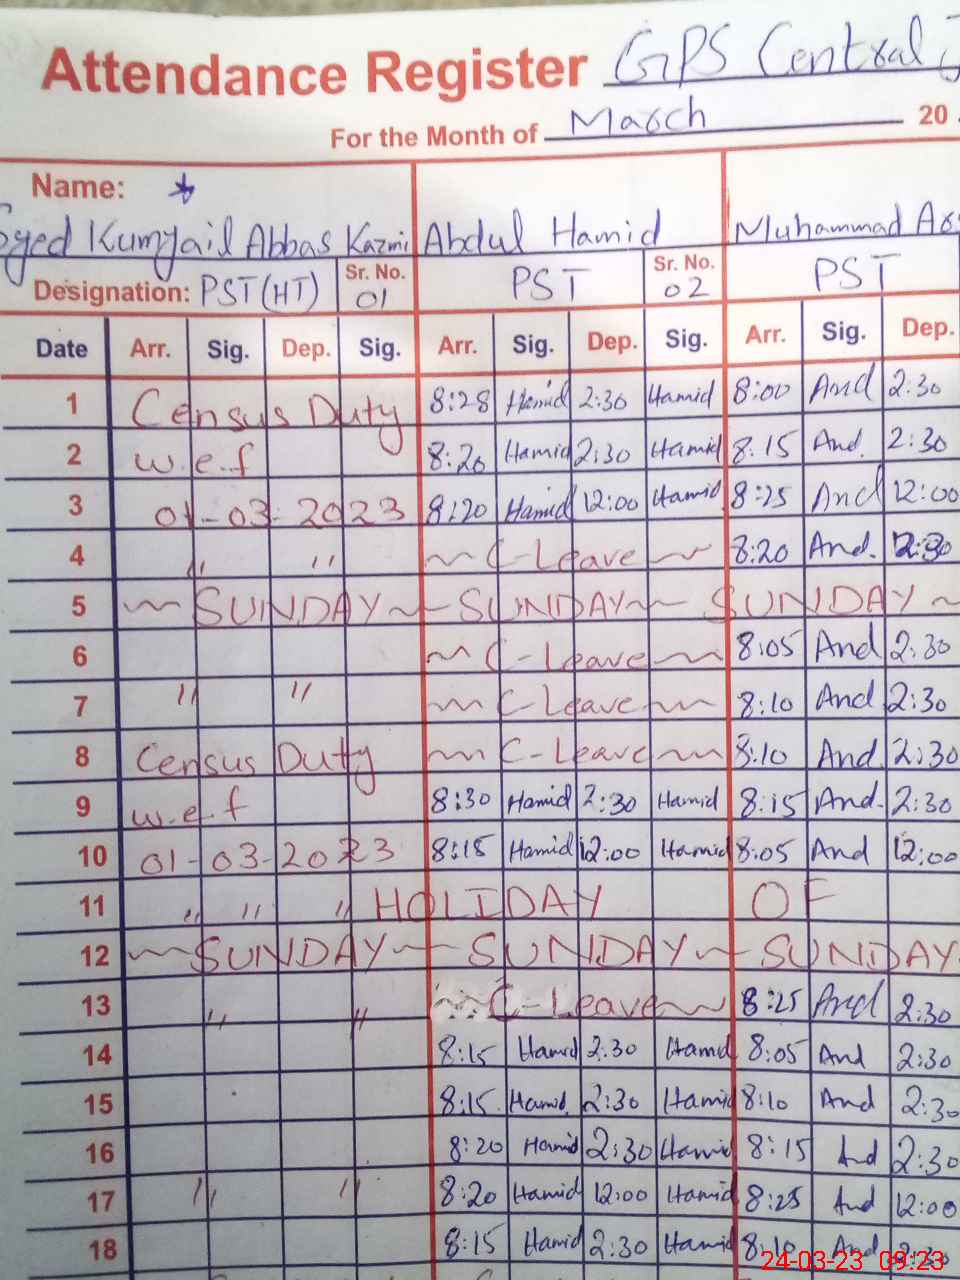 Attendance Register GPS Central
For the Month of March 20
Name:
Syed Kumyail Abbas Kazmi Abdul Hamid Muhammad
Designation: PST(HT) Sr. No. 01 PST Sr. No. 02 PST
Date Arr. Sig. Dep. Sig. Arr. Sig. Dep. Sig. Arr. Sig. Dep.
1 Census Duty 8:28 Hamid 2:30 Hamid 8:00 And 2:30
2 w.e.f 8:20 Hamid 2:30 Hamid 8:15 And 2:30
3 01-03-2023 8:20 Hamid 12:00 Hamid 8:25 And 12:00
4 " " C-Leave 8:20 And 2:30
5 SUNDAY SUNDAY SUNDAY
6 C-Leave 8:05 And 2:30
7 " " C-Leave 8:10 And 2:30
8 Census Duty C-Leave 8:10 And 2:30
9 w.e.f 8:30 Hamid 2:30 Hamid 8:15 And 2:30
10 01-03-2023 8:15 Hamid 12:00 Hamid 8:05 And 12:00
11 " " " HOLIDAY OF
12 SUNDAY SUNDAY SUNDAY
13 " " C-Leave 8:25 And 2:30
14 8:15 Hamid 2:30 Hamid 8:05 And 2:30
15 8:15 Hamid 2:30 Hamid 8:10 And 2:30
16 8:20 Hamid 2:30 Hamid 8:15 And 2:30
17 " " 8:20 Hamid 12:00 Hamid 8:25 And 12:00
18 8:15 Hamid 2:30 Hamid 8:10 And
24-03-23 09:23